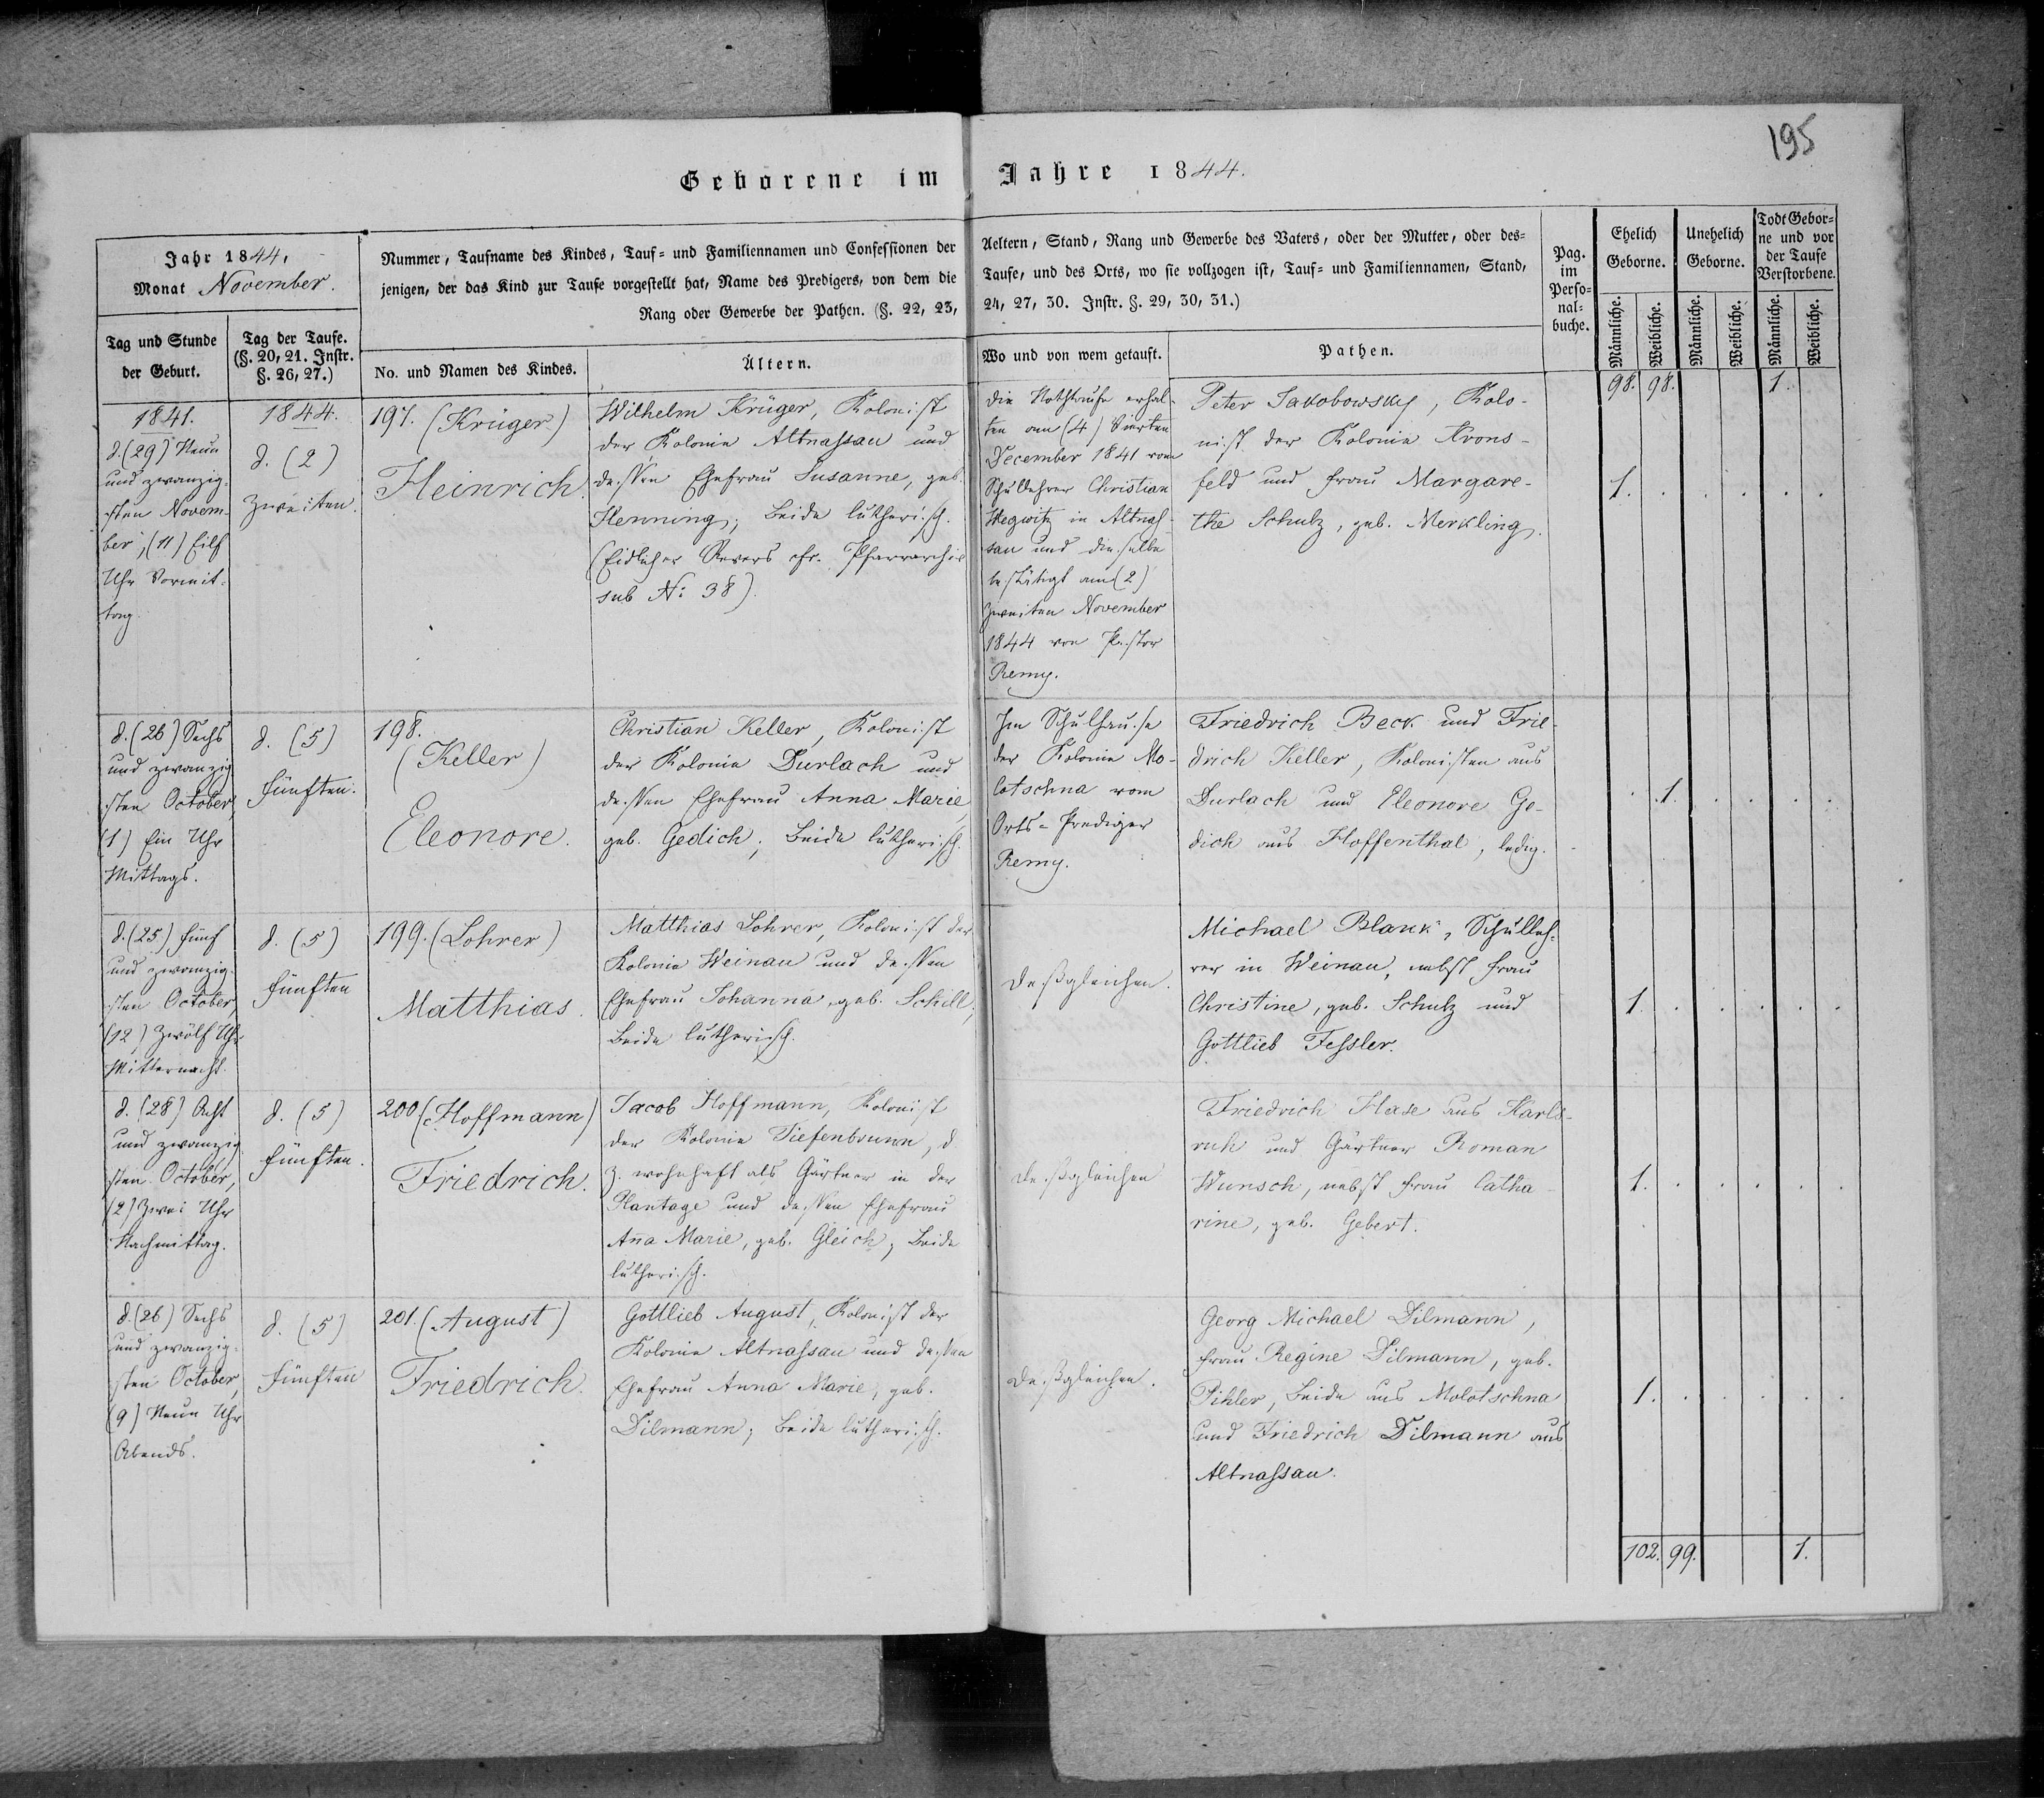 195
Geborene im Jahre 1844.
Jahr 1844,
Monat November.
Tag und Stunde
der Geburt.
Tag der Taufe.
(§. 20, 21. Instr.
§. 26, 27.)
Nummer, Taufname des Kindes, Tauf- und Familiennamen und Confessionen der Aeltern, Stand, Rang und Gewerbe des Vaters, oder der Mutter, oder des-
jenigen, der das Kind zur Taufe vorgestellt hat, Name des Predigers, von dem die Taufe, und des Orts, wo sie vollzogen ist, Tauf- und Familiennamen, Stand,
Rang oder Gewerbe der Pathen. (§. 22, 23, 24, 27, 30. Instr. §. 29, 30, 31.)
No. und Namen des Kindes.
Ältern.
Wo und von wem getauft.
Pathen.
Pag.
im
Perso-
nal-
buche.
Ehelich
Geborne.
Unehelich
Geborne.
Todt Gebor-
ne und vor
der Taufe
Verstorbene.
Männliche.
Weibliche.
Männliche.
Weibliche.
Männliche.
Weibliche.
98. 98. 1.
1841.
d. (29) Neun
und zwanzig-
sten Novem-
ber, (11) Eilf
Uhr Vormit-
tag.
1844.
d. (2)
Zweiten.
197. (Krüger)
Heinrich.
Wilhelm Krüger, Kolonist
der Kolonie Altnassau und
dessen Ehefrau Susanne, geb.
Henning; Beide lutherisch.
(Eidlicher Revers cfr. Pfarrarchiv
sub No 38)
Die Nothtaufe erhal-
ten am (4) Vierten
December 1841 vom
Schullehrer Christian
Wegwitz in Altnas-
sau und dieselbe
bestätigt am (2)
Zweiten November
1844 von Pastor
Remy.
Peter Jakobowsky, Kolo-
nist der Kolonie Krons-
feld und Frau Margare-
the Schulz, geb. Merkling.
1. . . . . .
d. (26) Sechs
und zwanzig
sten October,
(1) Ein Uhr
Mittags.
d. (5)
Fünften.
198.
(Keller)
Eleonore.
Christian Keller, Kolonist
der Kolonie Durlach und
dessen Ehefrau Anna Marie,
geb. Gedich; Beide lutherisch.
Im Schulhause
der Kolonie Mo-
lotschna vom
Orts-Prediger
Remy.
Friedrich Beck und Frie-
drich Keller, Kolonisten aus
Durlach und Eleonore Ge-
dich aus Hoffenthal, ledig.
. 1. . . . .
d. (25) Fünf
und zwanzig-
sten October,
(12) Zwölf Uhr
Mitternacht.
d. (5)
Fünften
199. (Lohrer)
Matthias.
Matthias Lohrer, Kolonist der
Kolonie Weinau und dessen
Ehefrau Johanna, geb. Schill;
Beide lutherisch.
Deßgleichen.
Michael Blank, Schulleh-
rer in Weinau, nebst Frau
Christine, geb. Schulz und
Gottlieb Fessler.
1. . . . . .
d. (28) Acht
und zwanzig
sten October,
(2) Zwei Uhr
Nachmittag.
d. (5)
Fünften.
200. (Hoffmann)
Friedrich.
Jacob Hoffmann, Kolonist
der Kolonie Tiefenbrunn, d.
z. wohnhaft als Gärtner in der
Plantage und dessen Ehefrau
Anna Marie, geb. Gleich; Beide
lutherisch.
Deßgleichen
Friedrich Hase aus Karls-
ruh und Gärtner Roman
Wunsch, nebst Frau Catha-
rine, geb. Gebert.
1. . . . . .
d. (26) Sechs
und zwanzig-
sten October,
(9) Neun Uhr
Abends.
d. (5)
Fünften
201. (August)
Friedrich.
Gottlieb August, Kolonist der
Kolonie Altnassau und dessen
Ehefrau Anna Marie, geb.
Dilmann; Beide lutherisch.
Deßgleichen.
Georg Michael Dilmann,
Frau Regine Dilmann, geb.
Pihler, Beide aus Molotschna
und Friedrich Dilmann aus
Altnassau.
1. . . . . .
102. 99. 1.